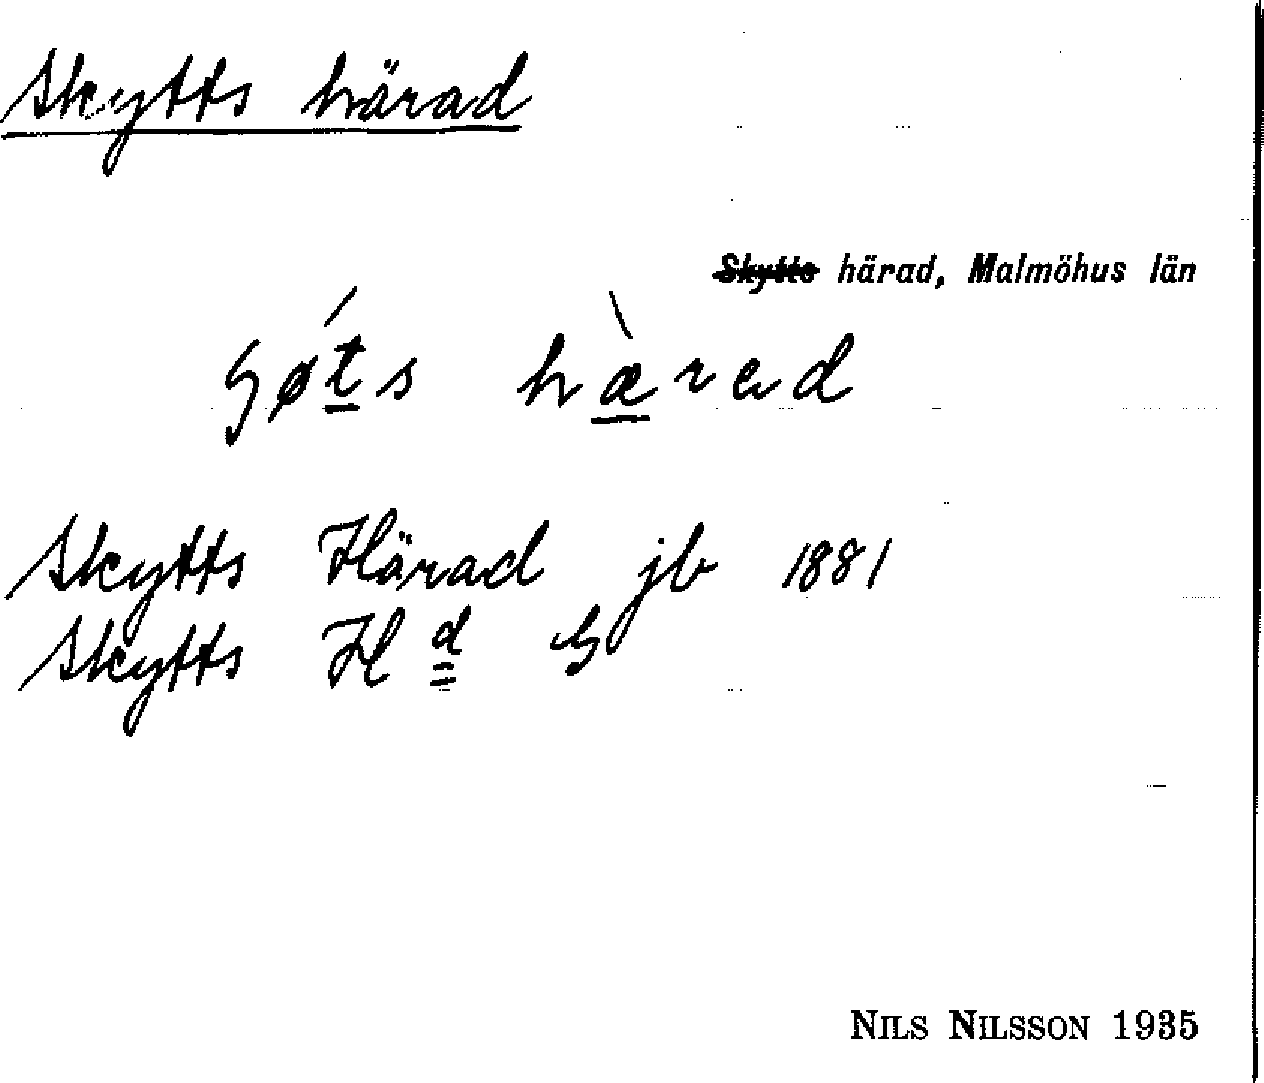 Skytts härad
Skytts härad, Malmöhus län
ɧøt́s hæ̀rad
Skytts Härad jb 1881
Skytts Hd
NILS NILSSON 1935